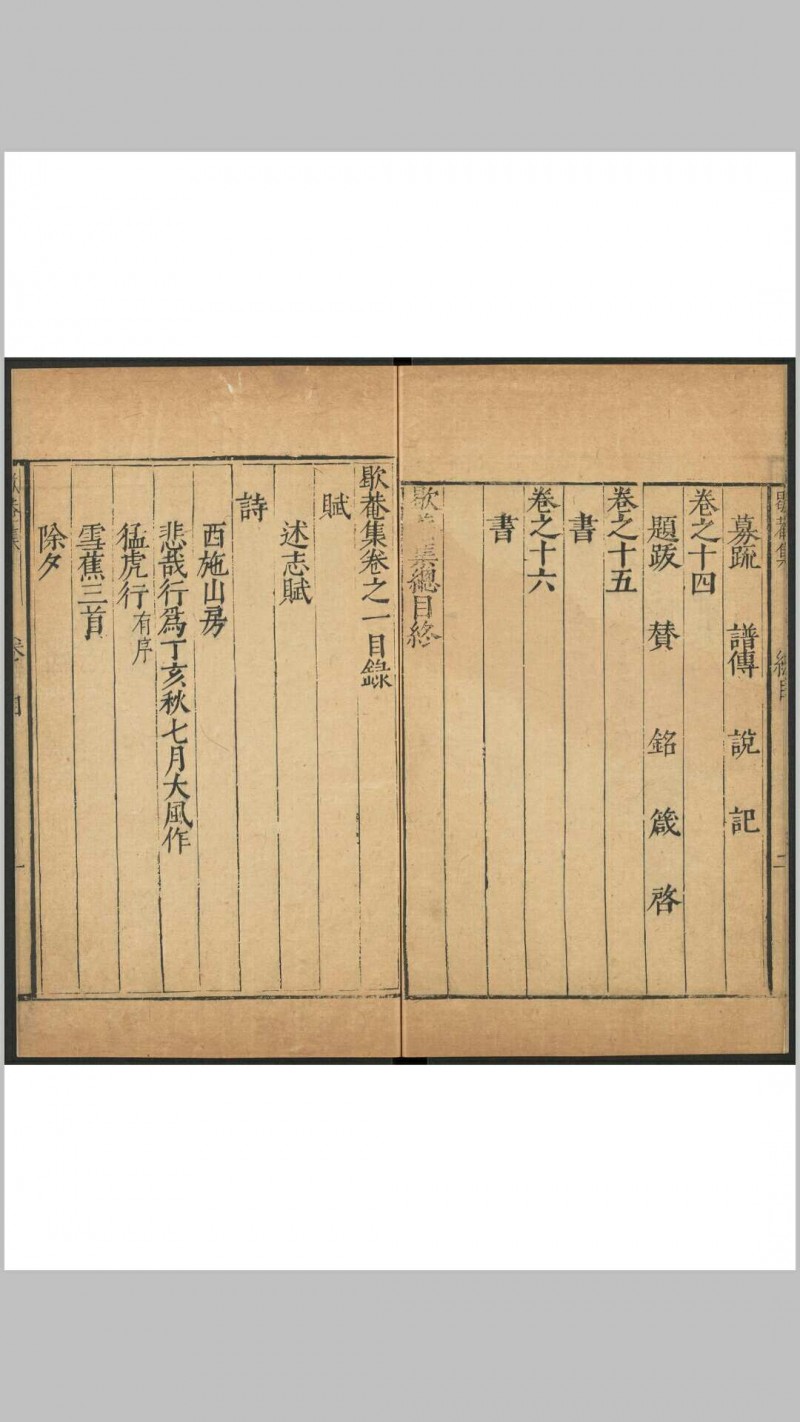 募疏 譜傳 說 記
卷之十四
題跋 賛 銘 箴 啓
卷之十五
書
卷之十六
書
歇 集總目終
歇菴集卷之一目錄
賦
述志賦
詩
西施山房
悲哉行爲丁亥秋七月大風作
猛虎行有序
雪蕉三首
除夕